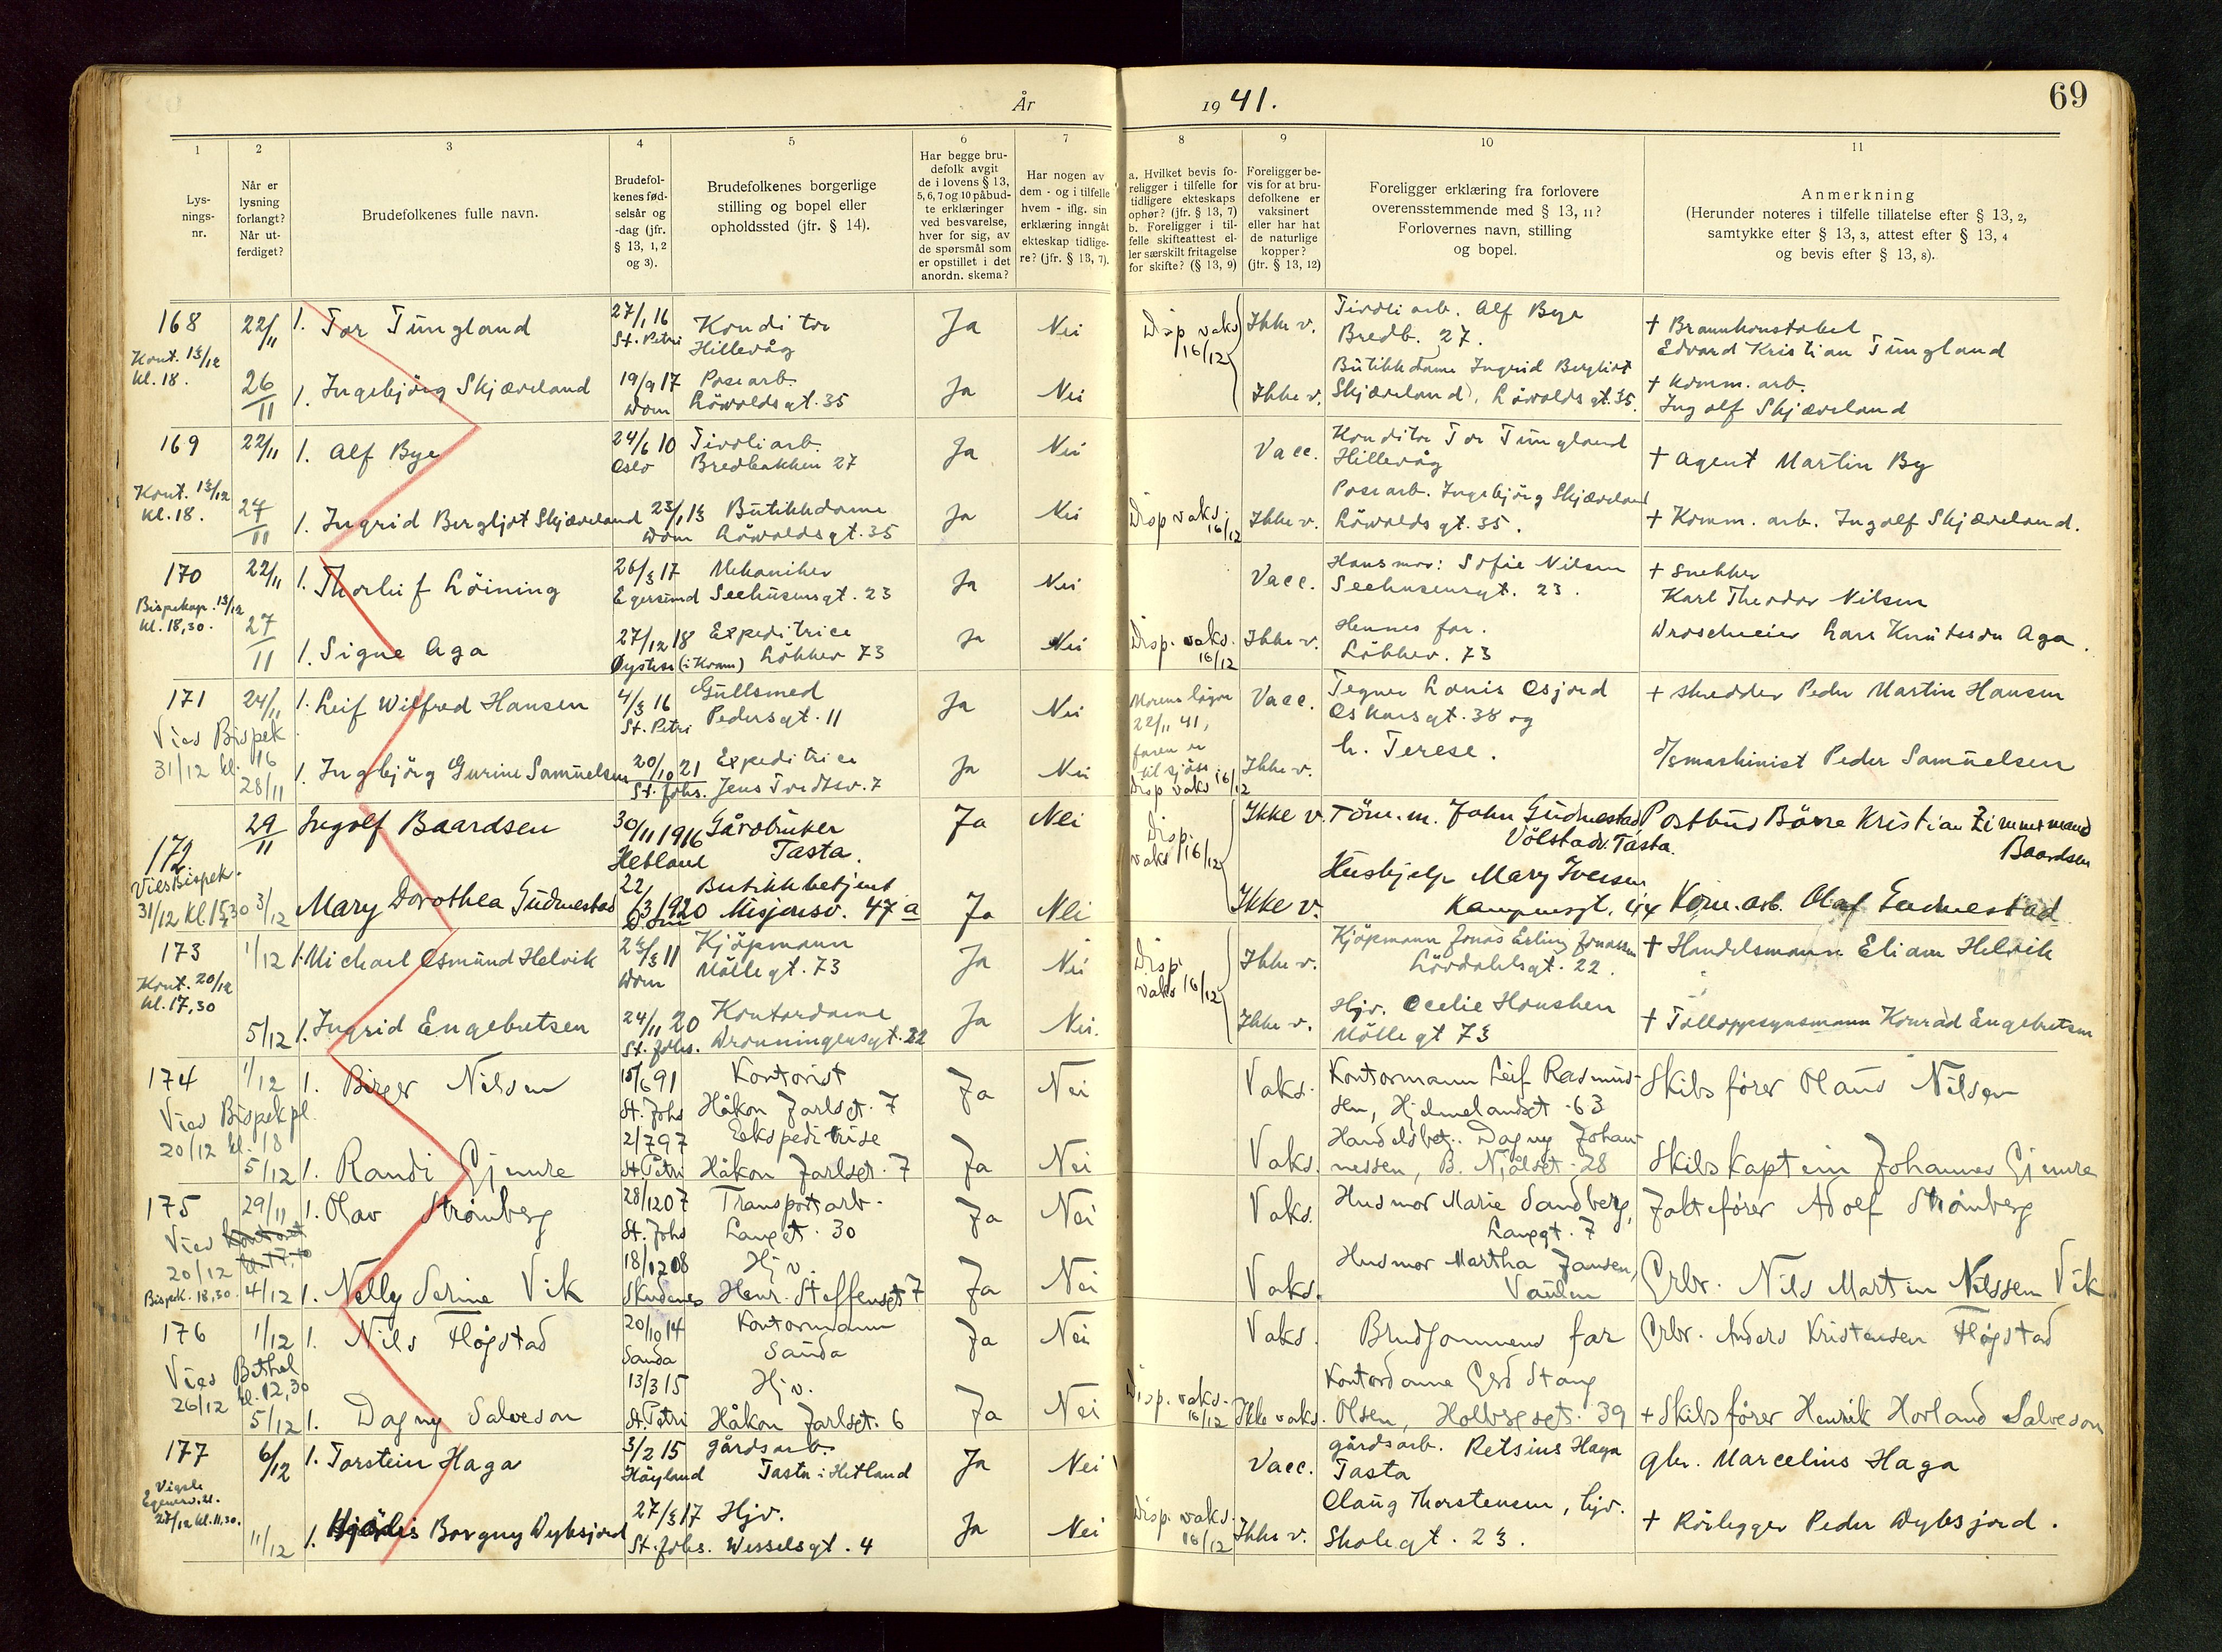 År 1941.
69
1
Lys-
nings-
nr.
2
Når er
lysning
forlangt?
Når ut-
ferdiget?
3
Brudefolkenes fulle navn.
4
Brudefol-
kenes fød-
selsår og
-dag (jfr.
§ 13, 1, 2
og 3).
5
Brudefolkenes borgerlige
stilling og bopel eller
opholdssted (jfr. § 14).
6
Har begge bru-
defolk avgit
de i lovens § 13,
5, 6, 7 og 10 påbud-
te erklæringer
ved besvarelse,
hver for sig, av
de spørsmål som
er opstillet i det
anordn. skema?
7
Har nogen av
dem - og i tilfelle
hvem - iflg. sin
erklæring inngåt
ekteskap tidlige-
re? (jfr. § 13, 7).
8
a. Hvilket bevis fo-
religger i tilfelle for
tidligere ekteskaps
ophør? (jfr. § 13, 7)
b. Foreligger i til-
felle skifteattest el-
ler særskilt fritagelse
for skifte? (§ 13, 9)
9
Foreligger be-
vis for at bru-
defolkene er
vaksinert
eller har hat
de naturlige
kopper?
(jfr. § 13, 12)
10
Foreligger erklæring fra forlovere
overensstemmende med § 13, 11?
Forlovernes navn, stilling
og bopel.
11
Anmerkning
(Herunder noteres i tilfelle tillatelse efter § 13, 2,
samtykke efter § 13, 3, attest efter § 13, 4
og bevis efter § 13, 8).
168
Kont. 13/12
kl. 18.
22/11
1. Tor Tungland
27/1 16
St. Petri
Konditor
Hillevåg
Ja
Nei
Disp vaks
16/12
Ikke v.
Tivoli arb. Alf Bye
Bredb. 27.
† Brannkonstabel
Edvard Kristian Tungland
26/11
1. Ingebjörg Skjæveland
19/9 17
Dom
Posearb.
Lövoldsgt. 35
Ja
Nei
Ikke v.
Butikkdame Ingrid Bergliot
Skjæveland, Lövolds gt. 35.
† Komm. arb.
Ingolf Skjæveland
169
Kont. 13/12
kl. 18.
22/11
1. Alf Bye
24/6 10
Oslo
Tivoliarb.
Bredbakken 27
Ja
Nei
Vacc.
Konditor Tor Tungland
Hillevåg
† Agent Martin By
27/11
1. Ingrid Bergljot Skjæveland
23/1 13
Dom
Butikkdame
Lövoldsgt. 35
Ja
Nei
Disp vaks.
16/12
Ikke v.
Posearb. Ingebjörg Skjæveland
Lövoldsgt. 35.
† Komm. arb. Ingolf Skjæveland.
170
Bispekap. 13/12
kl. 18,30.
22/11
1. Thorleif Löining
26/3 17
Egersund
Mekaniker
Seehusensgt. 23
Ja
Nei
Vacc.
Hans mor: Sofie Nilsen
Seehusensgt. 23.
† Snekker
Karl Theodor Nilsen
27/11
1. Signe Aga
27/12 18
Øystese (i Kvam)
Expeditrice
Lökkev. 73
Ja
Nei
Disp. vaks.
16/12
Ikke v.
Hennes far.
Lökkev. 73
Droscheeier Lars Knutsson Aga.
171
Vies Bispek.
31/12 kl. 16
24/11
1. Leif Wilfred Hansen
4/3 16
St. Petri
Gullsmed
Pedersgt. 11
Ja
Nei
22/11 41,
faren er
til sjøss
Vacc.
Tegner Louis Osjord
Oskarsgt. 38 og
† skredder Peder Martin Hansen
28/11
1. Ingbjörg Gurine Samuelsen
20/10 21
St. Johs.
Expeditrice
Jens Tvedtsv. 7
Ja
Nei
Disp vaks 16/12
Ikke v.
h. Terese.
D/S maskinist Peder Samuelsen
172
Vies Bispek.
31/12 kl. 15,30
29/11
Ingolf Baardsen
30/11 1916
Hetland
Gårdbruker
Tasta.
Ja
Nei
Disp.
vaks 16/12
Ikke v.
Töm. m. John Gudmestad
Völstadv. Tasta.
Postbud Börre Kristian Zimmermand
Baardsen
3/12
Mary Dorothea Gudmestad
22/3 1920
Dom
Butikkbetjent
Misjonsv. 47 a
Ja
Nei
Ikke v.
Hushjelp Mary Iversen
Kampensgt. 44
Kom. arb. Olaf Gudmestad
173
Kont. 20/12
kl. 17,30
1/12
1. Michael Osmund Helvik
24/3 11
Dom
Kjöpmann
Möllegt. 73
Ja
Nei
Disp.
vaks 16/12
Ikke v.
Kjöpmann Jonas Erling Jonassen
Lövdahlsgt. 22.
† Handelsmann Eliam Helvik
5/12
1. Ingrid Engebretsen
24/11 20
St. Johs.
Kontordame
Dronningensgt. 22
Ja
Nei.
Ikke v.
Hjv. Cecelie Houshen
Möllegt 73
† Tolloppsynsmann Konrad Engebretsen
174
Vies Bispekpl.
20/12 kl. 18
1/12
1. Birger Nilsen
15/6 91
St. Johs
Kontorist
Håkon Jarlsgt. 7
Ja
Nei
Vaks.
Kontormann Leif Rasmus-
sen, Hjelmelandsgt. 63
Skibsfører Olaus Nilsen
5/12
1. Randi Gjemre
2/7 97
St. Petri
Eekspeditrise
Håkon Jarlsgt. 7
Ja
Nei
Vaks.
Handelsbet. Dagny Johan-
nessen, B. Njålsgt. 28
Skibskaptein Johannes Gjemre
175
Vies Kontoret
20/12 kl. 17,30
Bispek. 18,30.
29/11
1. Olav Strømberg
28/12 07
St. Johs
Transportarb.
Langgt. 30
Ja
Nei
Vaks.
Husmor Marie Sandberg,
Langgt. 7
Jaktefører Adolf Strømberg
4/12
1. Nelly Serine Vik
18/12 08
Skudenes
Hjv.
Henr. Steffensgt 7
Ja
Nei
Vaks.
Husmor Martha Jansen,
Vaulen
Grbr. Nils Martin Nilssen Vik
176
Vies Bethel
26/12 kl. 12,30
1/12
1. Nils Fløgstad
20/10 14
Sauda
Kontormann
Sauda
Ja
Nei
Vaks.
Brudgommens far
Grbr. Anders Kristensen Fløgstad
5/12
1. Dagny Salveson
13/3 15
St Petri
Hjv.
Håkon Jarlsgt. 6
Ja
Nei
Disp. vaks.
16/12
Ikke vaks.
Kontordame Gerd Stang
Olsen, Holbergsgt. 39
† Skibsfører Henrik Hovland Salveson
177
Vigsle
Egenesv. 21.
27/12 kl. 11,30.
6/12
1. Torstein Haga
3/2 15
Höyland
gårdsarb.
Tasta i Hetland
Ja
Nei
Vacc.
gårdsarb. Retsius Haga
Tasta
gbr. Marcelius Haga
11/12
1. Hjördis Borgny Dybsjord
27/3 17
St. Johs.
Hjv.
Wesselsgt. 4
Ja
Nei
Disp. vaks.
16/12
Ikke v.
Olaug Thorstensen, hjv.
Skolegt. 23.
† Rörlegger Peder Dybsjord.